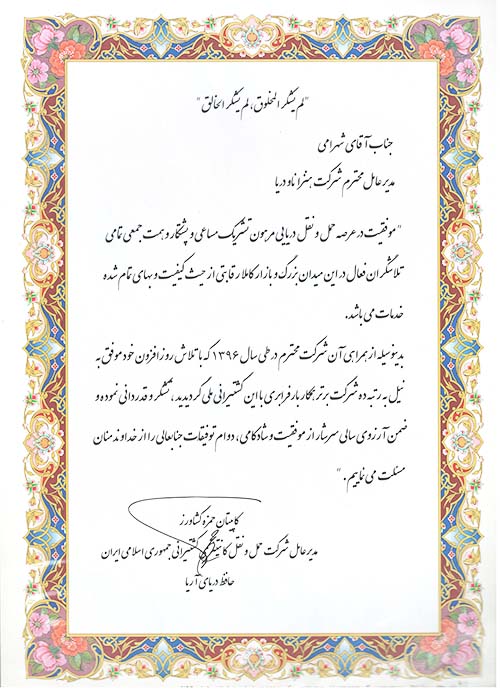 "لم یشکر المخلوق، لم یشکر الخالق"
جناب آقای شهرامی
مدیر عامل محترم شرکت هنزا ناو دریا
"موفقیت در عرصه حمل و نقل دریایی مرهون تشریک مساعی و پشتکار و همت جمعی تمامی
تلاشگران فعال در این میدان بزرگ و بازار کاملا رقابتی از حیث کیفیت و بهای تمام شده
خدمات می باشد.
بدینوسیله از همراهی آن شرکت محترم در طی سال ۱۳۹۶ که با تلاش روز افزون خود موفق به
نیل به رتبه ده شرکت برتر همکار بارفرابری با این کشتیرانی ملی گردیدید، تشکر و قدردانی نموده و
ضمن آرزوی سالی سرشار از موفقیت و شادکامی، دوام توفیقات جنابعالی را از خداوند منان
مسئلت می نماییم."
کاپیتان حمزه کشاورز
مدیر عامل شرکت حمل و نقل کانتینری کشتیرانی جمهوری اسلامی ایران
حافظ دریای آریا